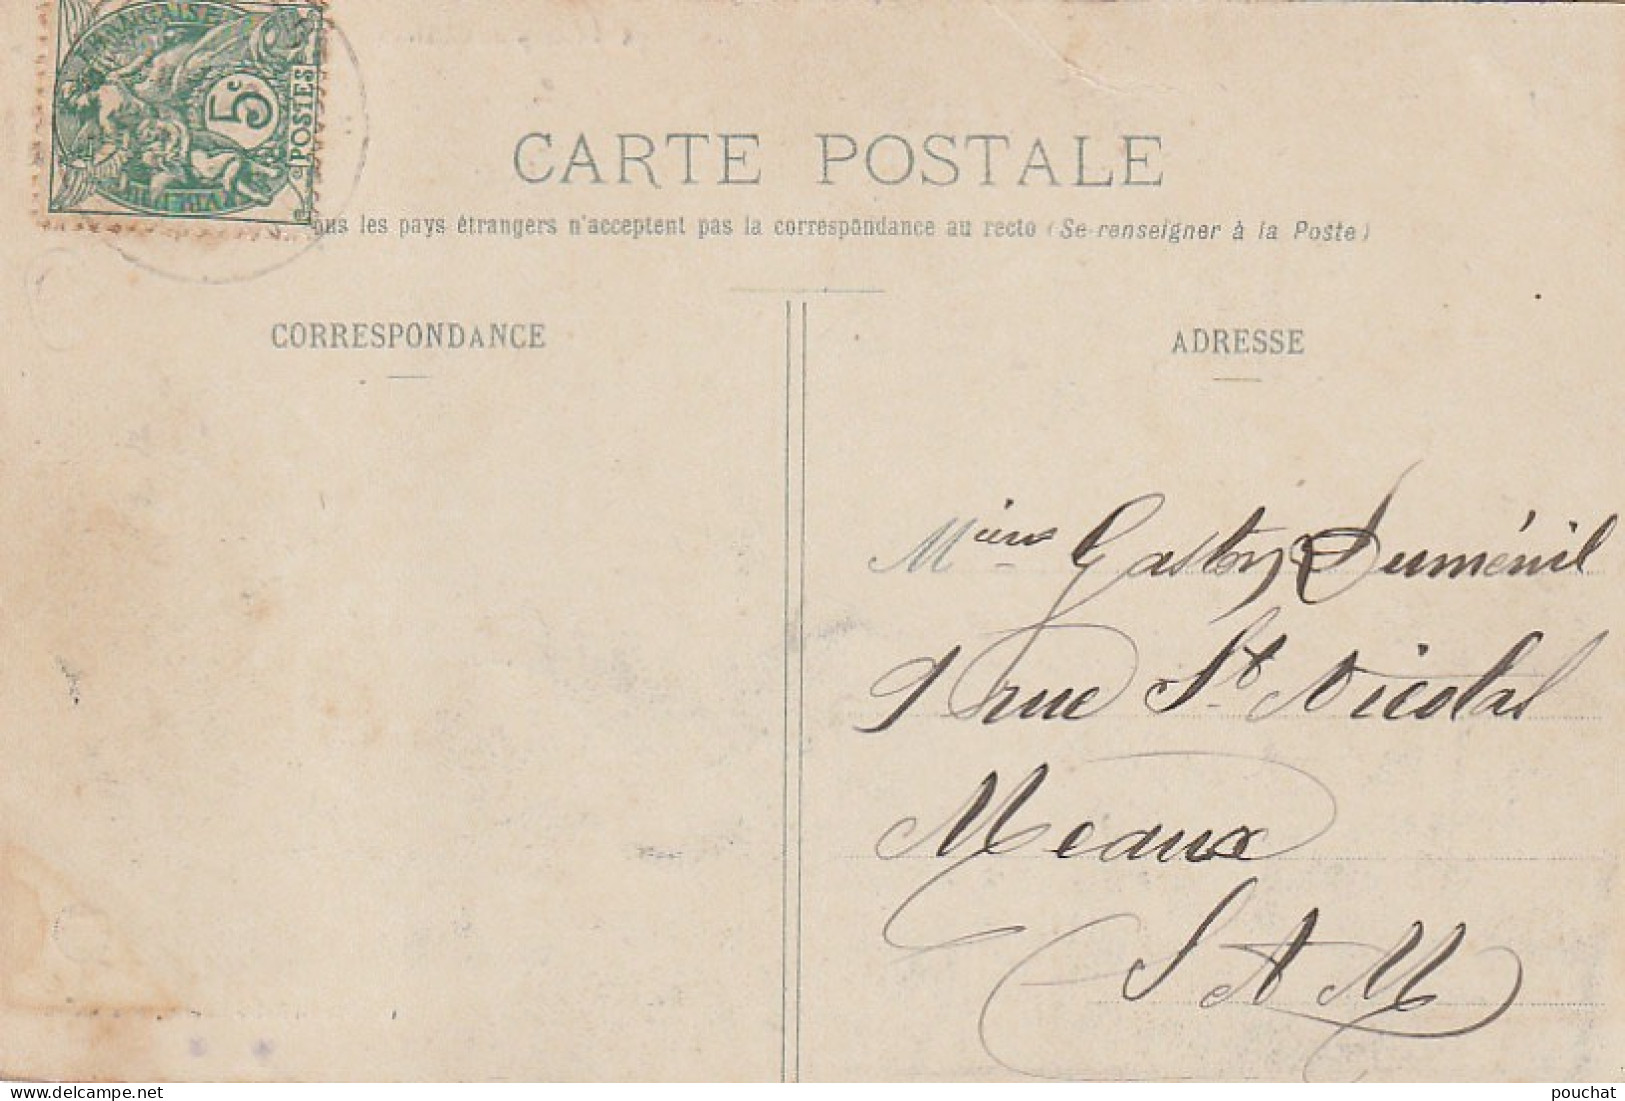 FRANÇAISE
5c
POSTES
CARTE POSTALE
ous les pays étrangers n'acceptent pas la correspondance au recto (Se renseigner à la Poste)
CORRESPONDANCE
ADRESSE
Gaston Duménil
9 rue St Nicolas
Meaux
S A M
pouchat